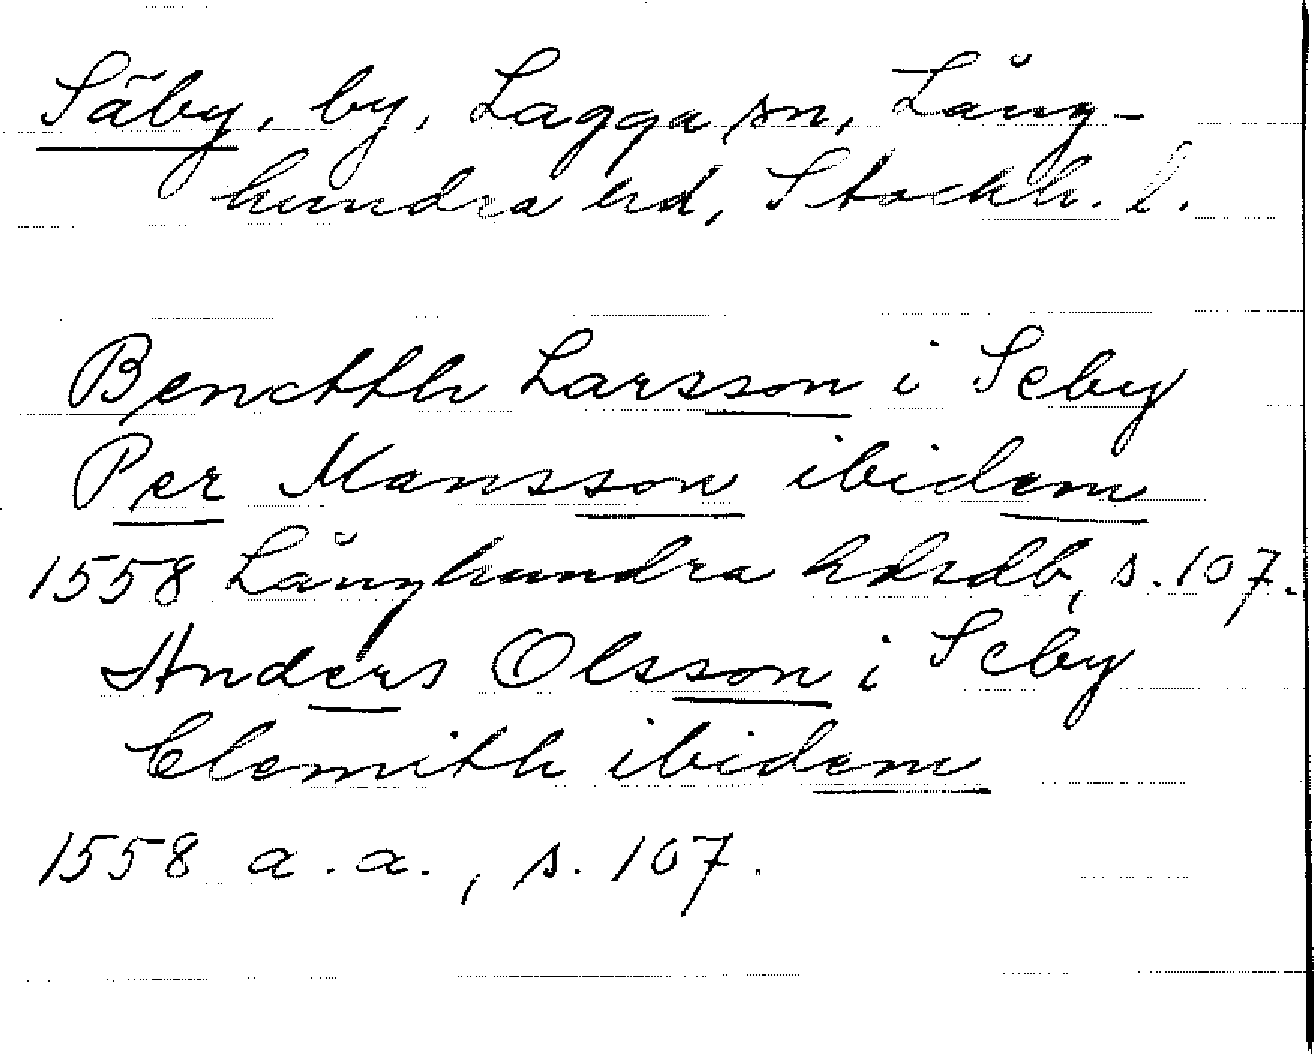 Säby, by, Lagga sn, Lång-
hundra hd, Stockh. l.
Benctth Larsson i Seby
Per Mansson ibidem
1558 Långhundra hdsdb, s. 107.
Anders Olsson i Seby
Clemith ibidem
1558 a. a., s. 107.